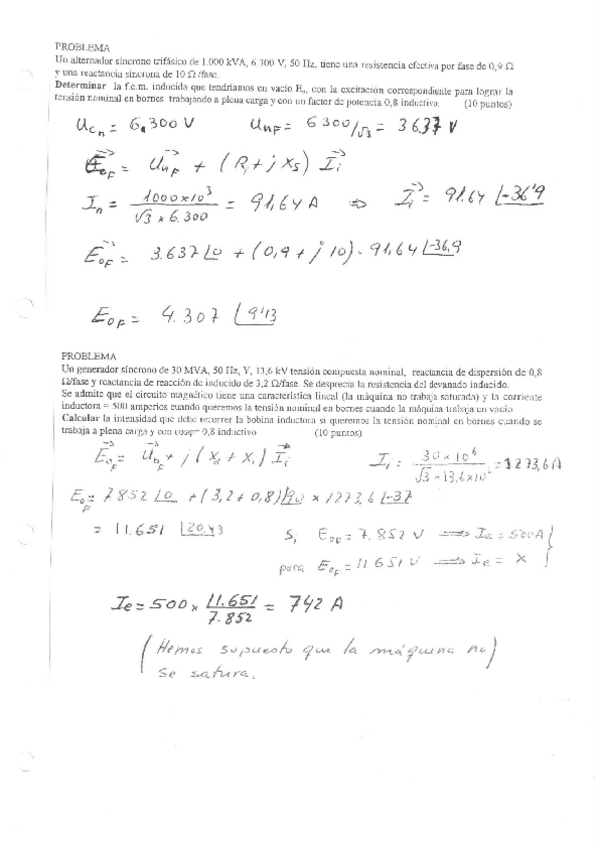 PROBLEMA
Un alternador síncrono trifásico de 1.000 kVA, 6.300 V, 50 Hz, tiene una resistencia efectiva por fase de 0,9 Ω
y una reactancia síncrona de 10 Ω /fase.
Determinar la f.e.m. inducida que tendríamos en vacío Eo, con la excitación correspondiente para lograr la
tensión nominal en bornes trabajando a plena carga y con un factor de potencia 0,8 inductivo. (10 puntos)
Ucn = 6.300 V UnF = 6300/√3 = 3637 V
EoF = UnF + (Ri + j Xs) Ii
In = 1000x10³ / √3 x 6.300 = 91,64 A ⇒ Ii = 91.64 ∠-36'9
EoF = 3.637 ∠0 + (0,9 + j 10) · 91,64 ∠-36,9
EoF = 4.307 ∠9'13
PROBLEMA
Un generador síncrono de 30 MVA, 50 Hz, Y, 13,6 kV tensión compuesta nominal, reactancia de dispersión de 0,8
Ω/fase y reactancia de reacción de inducido de 3,2 Ω/fase. Se desprecia la resistencia del devanado inducido.
Se admite que el circuito magnético tiene una característica lineal (la máquina no trabaja saturada) y la corriente
inductora = 500 amperios cuando queremos la tensión nominal en bornes cuando la máquina trabaja en vacío.
Calcular la intensidad que debe recorrer la bobina inductora si queremos la tensión nominal en bornes cuando se
trabaja a plena carga y con cosφ= 0,8 inductivo (10 puntos)
EoF = UnF + j (Xd + Xi) Ii Ii = 30 x 10⁶ / √3 x 13,6 x 10³ = 1273,6 A
EoF = 7852 ∠0 + (3,2 + 0,8) ∠90 x 1273,6 ∠-37
= 11.651 ∠20,43 Si EoF = 7.852 V ⇒ Ie = 500A
para EoF = 11 651 V ⇒ Ie = X
Ie = 500 x 11.651 / 7.852 = 742 A
(Hemos supuesto que la máquina no)
se satura.